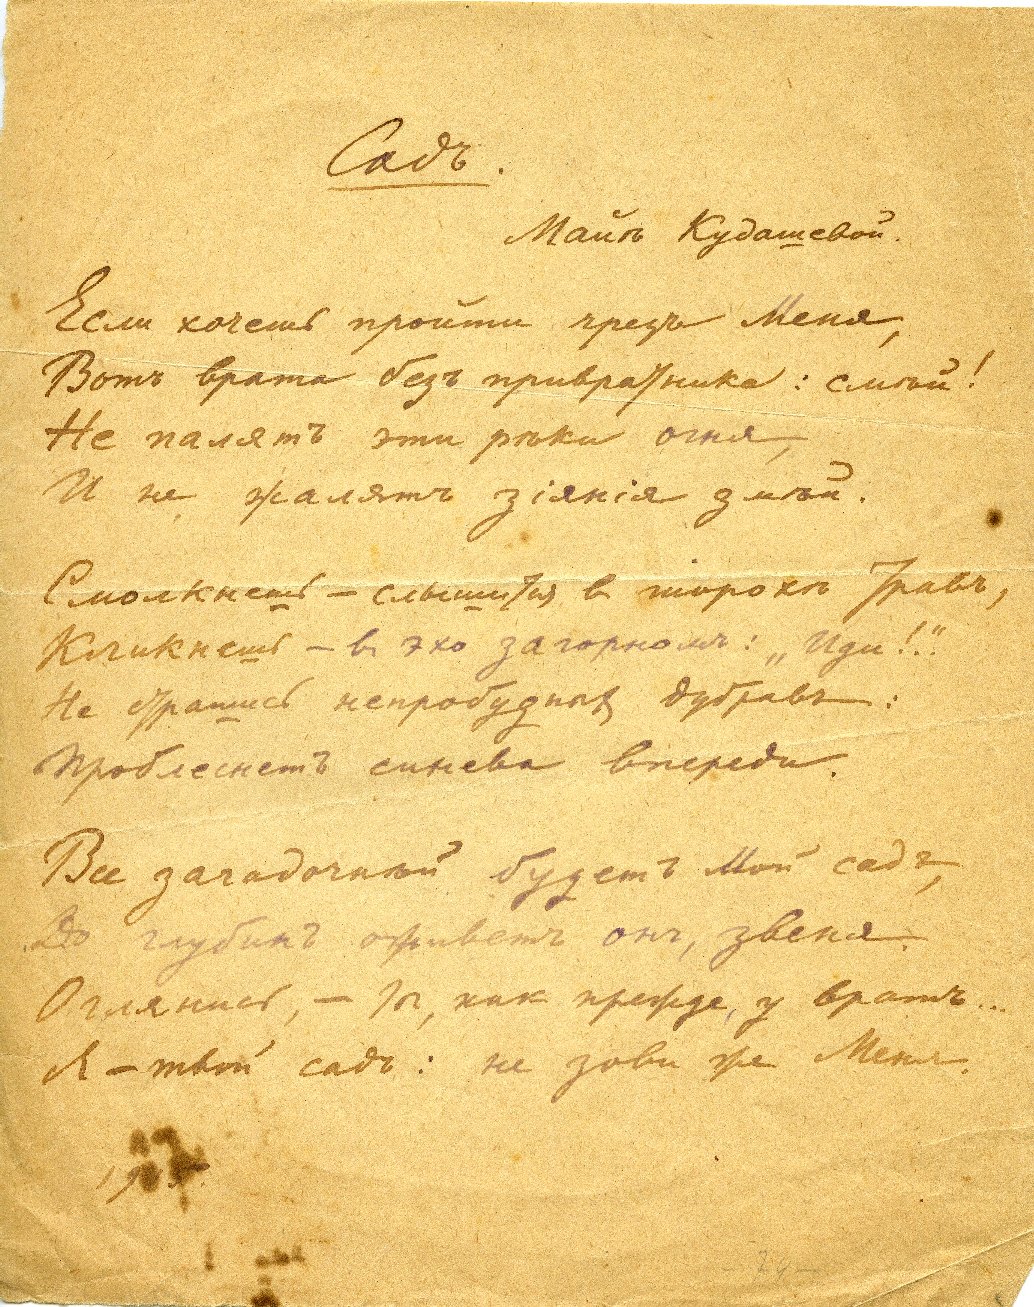 Садъ.
Майѣ Кудашевой.
Если хочешь пройти чрезъ Меня,
Вотъ врата безъ привратника: смѣй!
Не палятъ эти рѣки огня,
И не жалятъ зіянія змѣй.
Смолкнешь – слышится в шорохѣ травъ,
Кликнешь – въ эхо загорномъ: „Иди!.."
Не страшись непробудныхъ дубравъ:
Проблеснетъ синева впереди.
Все загадочнѣй будетъ Мой садъ,
До глубинъ оживетъ онъ, звеня.
Оглянись, – ты, как прежде, у вратъ...
Я – твой садъ: не зови же Меня.